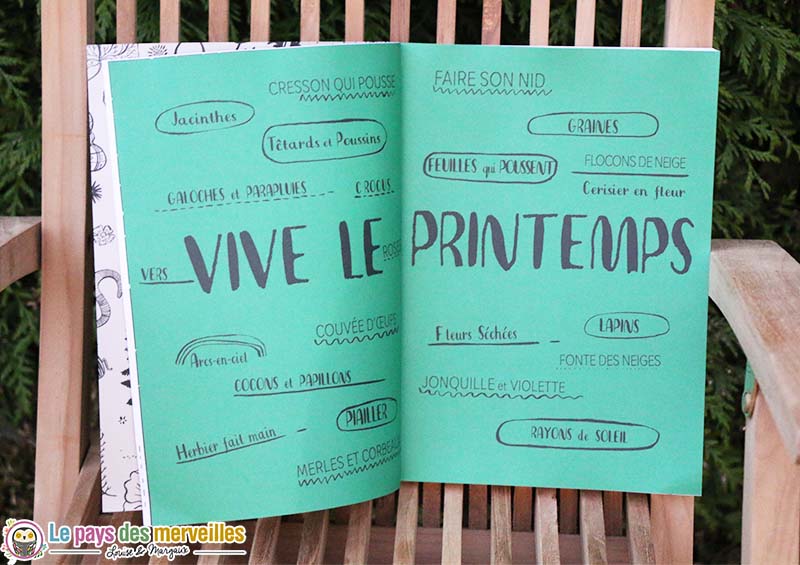 CRESSON QUI POUSSE
Jacinthes
Têtards et Poussins
GALOCHES et PARAPLUIES
CROCUS
FAIRE SON NID
GRAINES
FEUILLES qui POUSSENT
FLOCONS DE NEIGE
Cerisier en fleur
VIVE LE PRINTEMPS
VERS
COUVÉE D'ŒUFS
Arcs-en-ciel
COCONS et PAPILLONS
PIAILLER
Herbier fait main
MERLES ET
Fleurs Séchées
LAPINS
FONTE DES NEIGES
JONQUILLE et VIOLETTE
RAYONS de SOLEIL
Le pays des merveilles
Louise & Margaux